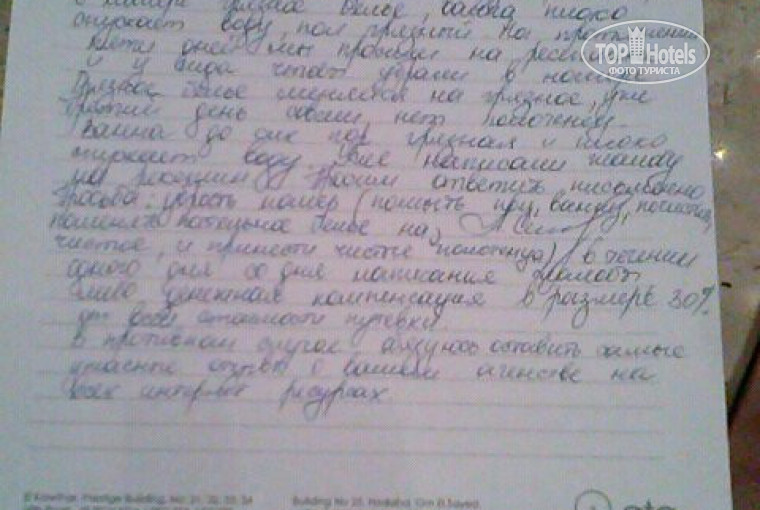 грязное белье, ванна плохо
спускает воду, пол грязный на протяжении
дней мы просили на ресепшен
и у гида чтобы убрали в номере
Грязное белье меняется на грязное, уже
третий день совсем нет полотенец.
Ванна до сих пор грязная и плохо
спускает воду. Уже написали жалобу
на ресепшин. Просим ответить письменно
Просьба: убрать номер (помыть пол, ванну, почистить,
поменять постельное белье на
чистое, и принести чистые полотенца) в течении
одного дня со дня написания жалобы
либо денежная компенсация в размере 30%
от всей стоимости путевки.
В противном случае обязуюсь оставить самые
ужасные отзывы о вашем агенстве на
всех интернет ресурсах
TOP Hotels
ФОТО ТУРИСТА
El Kawthar, Prestige Building, No: 31, 32, 33, 34
Building No 25, Hadaba, Om El Sayed,